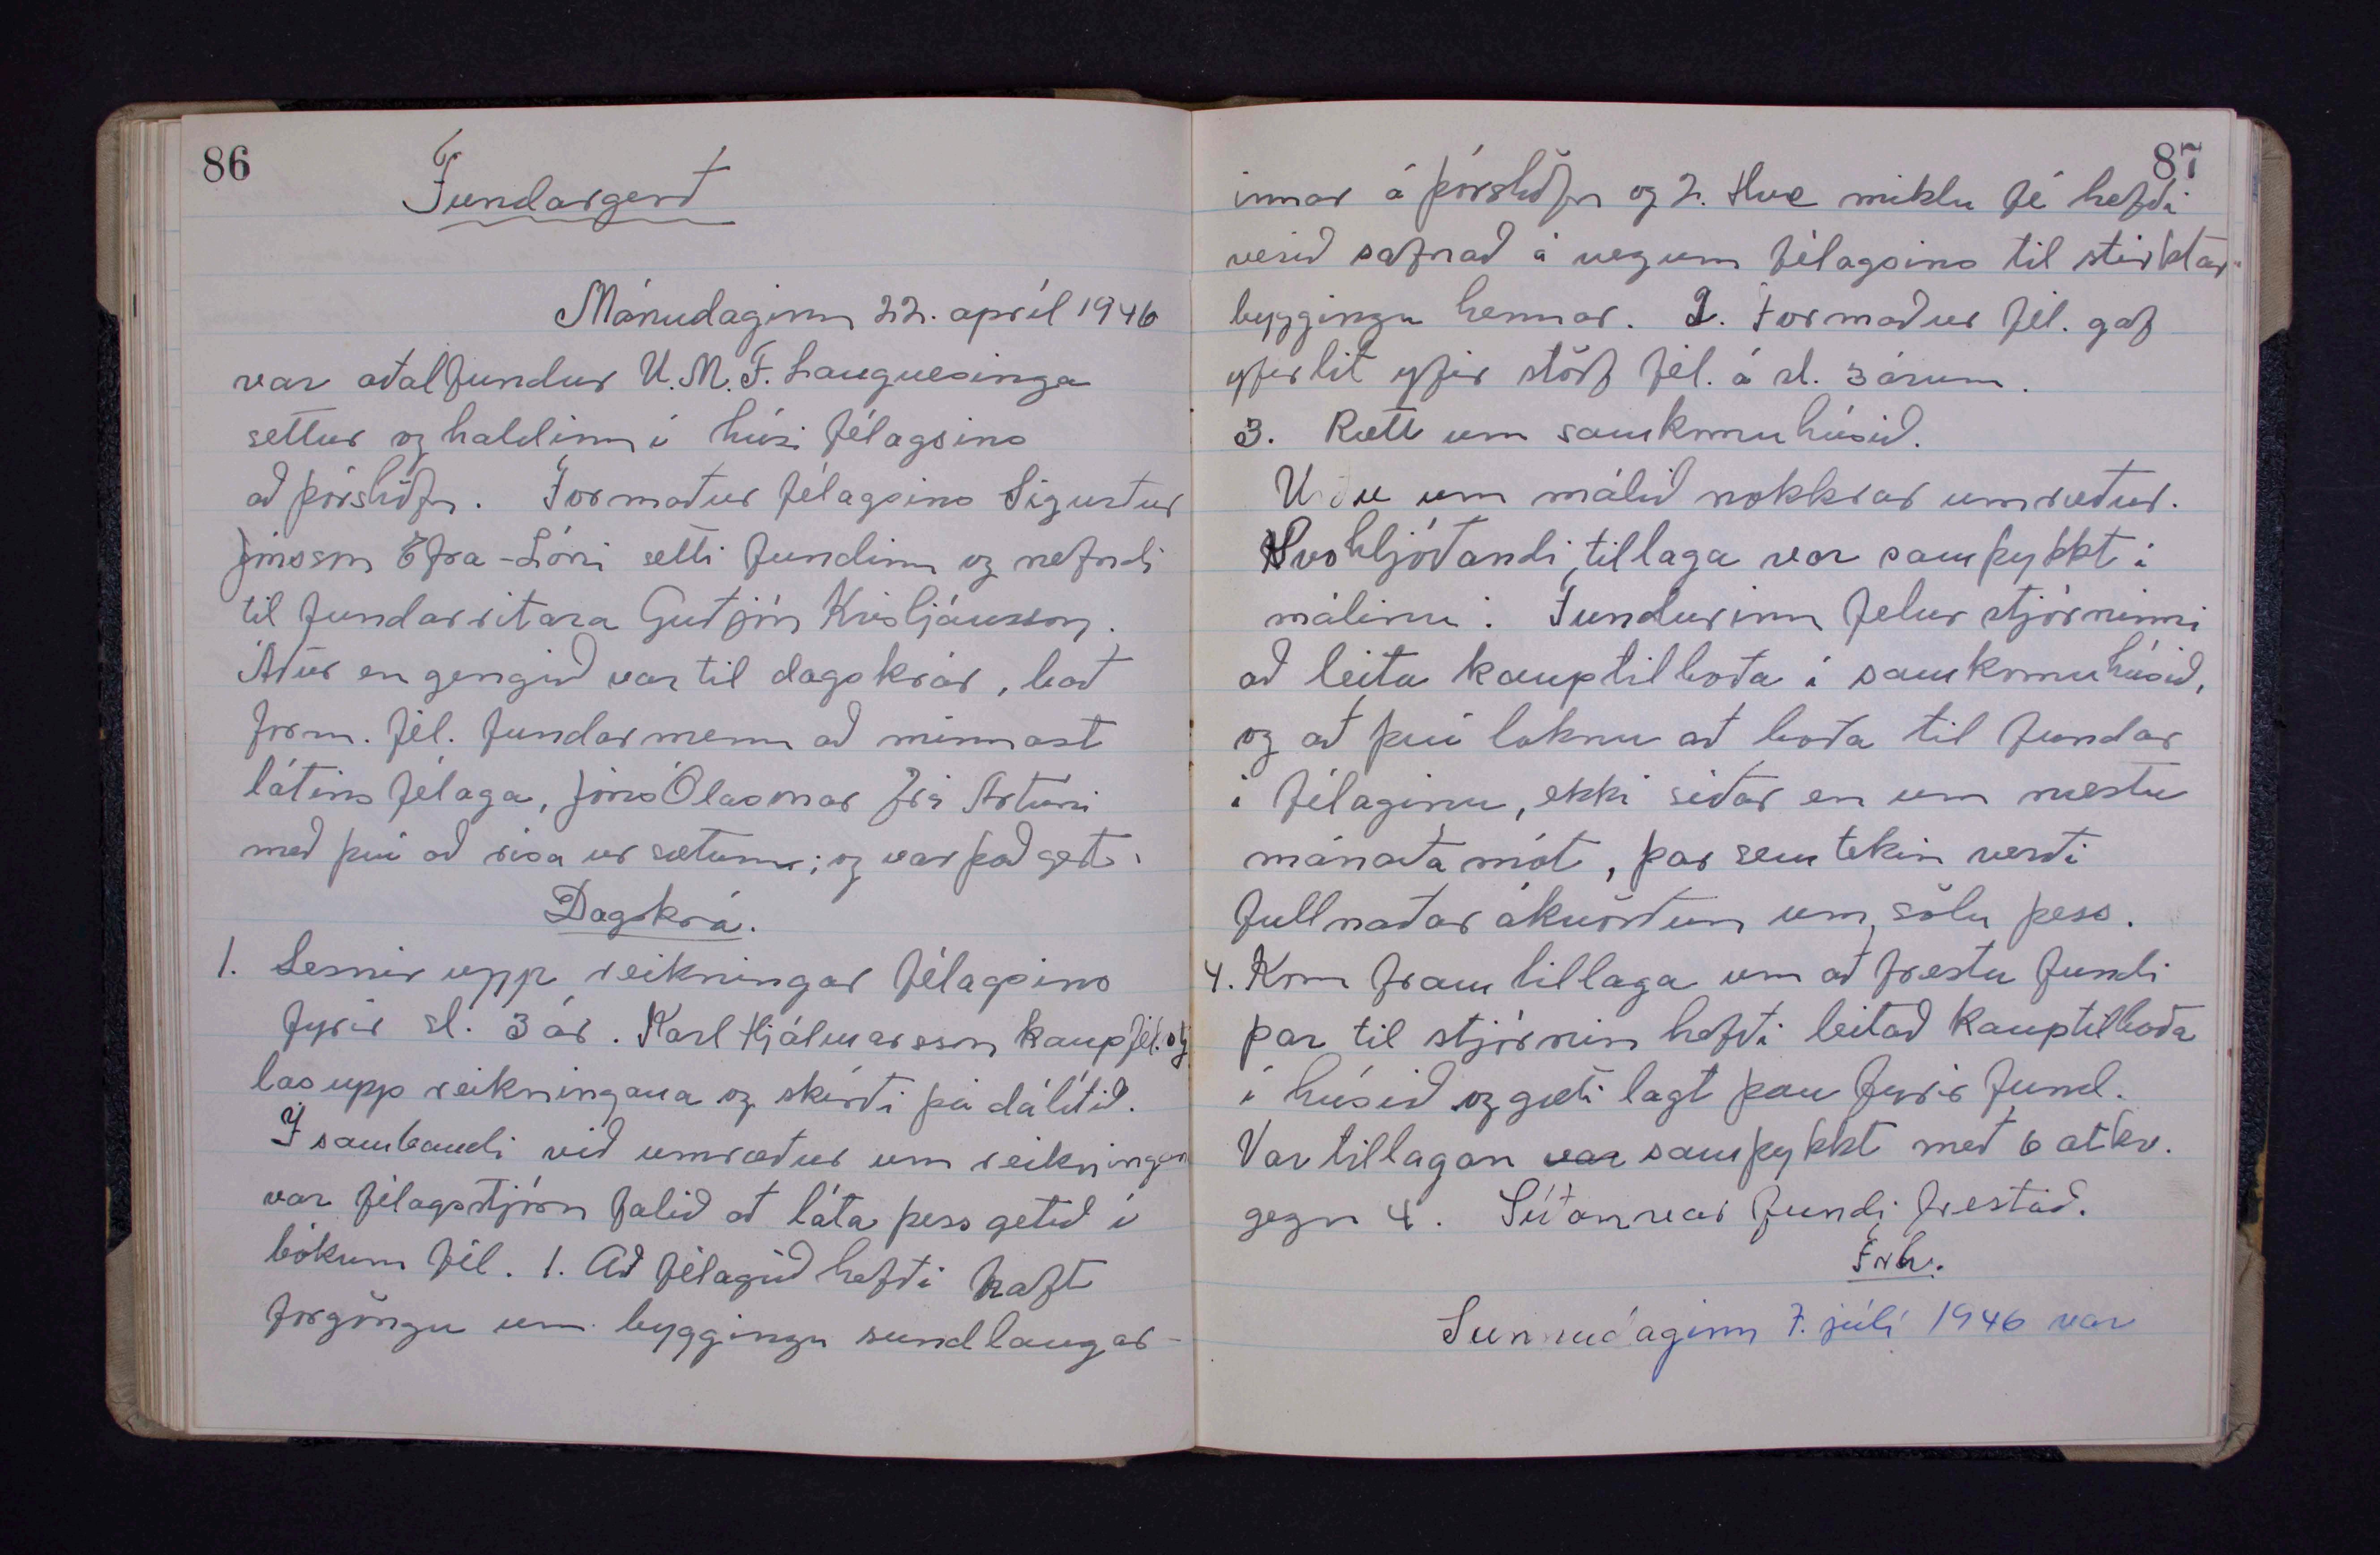 86
Fundargerð
Mánudaginn 22. apríl 1946
var aðalfundur U.M.F. Langnesinga
settur og haldinn í húsi félagsins
að Þórshöfn. Formaður félagsins Sigurður
Jónsson Efra-Lóni setti fundinn og nefndi
til fundarritara Guðjón Kristjánsson.
Áður en gengið var til dagskrár, bað
form. fél. fundarmenn að minnast
látins félaga, Jóns Ólasonar frá Ártúni
með því að rísa úr sætum; og var það gert.
Dagskrá.
1. Lesnir upp reikningar félagsins
fyrir sl. 3 ár. Karl Hjálmarsson kaupfél.stj
las upp reikningana og skírði þá dálítið.
Í sambandi við umræður um reikningana
var félagsstjórn falið að láta þess getið í
bókum fél. 1. Að félagið hefði haft
forgöngu um byggingu sundlaugar-
87
innar á Þórshöfn og 2. Hve miklu fé hefði
verið safnað á vegum félagsins til stirktar
byggingu hennar. 2. Formaður fél. gaf
yfirlit yfir störf fél. á sl. 3 árum.
3. Rætt um samkomuhúsið.
Urðu um málið nokkrar umræður.
Svohljóðandi tillaga var samþykkt í
málinu: Fundurinn felur stjórninni
að leita kauptilboða í samkomuhúsið,
og að því loknu að boða til fundar
í félaginu, ekki síðar en um næstu
mánaðamót, þar sem tekin verði
fullnaðar ákvörðun um sölu þess.
4. Kom fram tillaga um að fresta fundi
þar til stjórnin hefði leitað kauptilboða
í húsið og gæti lagt þau fyrir fund.
Var tillagan var samþykkt með 6 atkv.
gegn 4. Síðan var fundi frestað.
Frh.
Sunnudaginn 7. júlí 1946 var